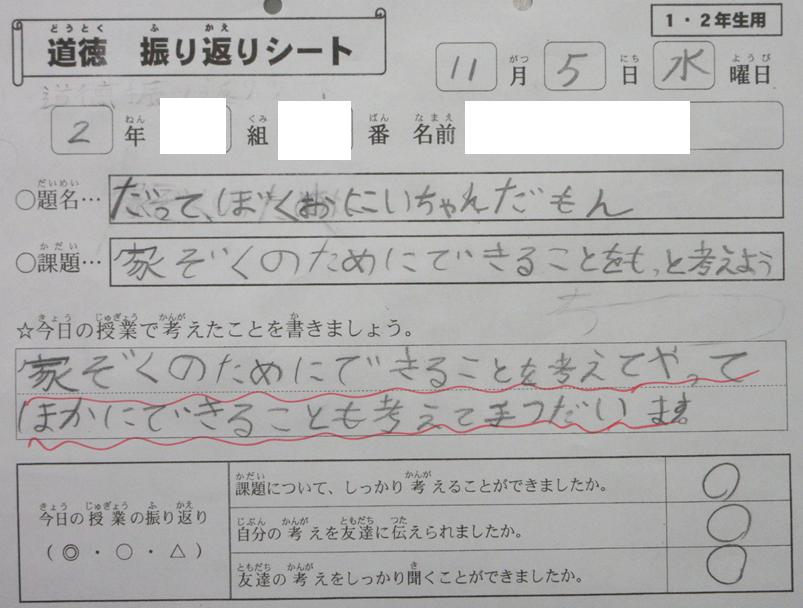 1・2年生用
道徳 振り返りシート
11月5日水曜日
2年 組 番 名前
○題名…だって、ぼくおにいちゃんだもん
○課題…家ぞくのためにできることをもっと考えよう
☆今日の授業で考えたことを書きましょう。
家ぞくのためにできることを考えてやって
ほかにできることも考えて手つだいます。
今日の授業の振り返り
(◎・○・△)
課題について、しっかり考えることができましたか。 ○
自分の考えを友達に伝えられましたか。 ○
友達の考えをしっかり聞くことができましたか。 ○